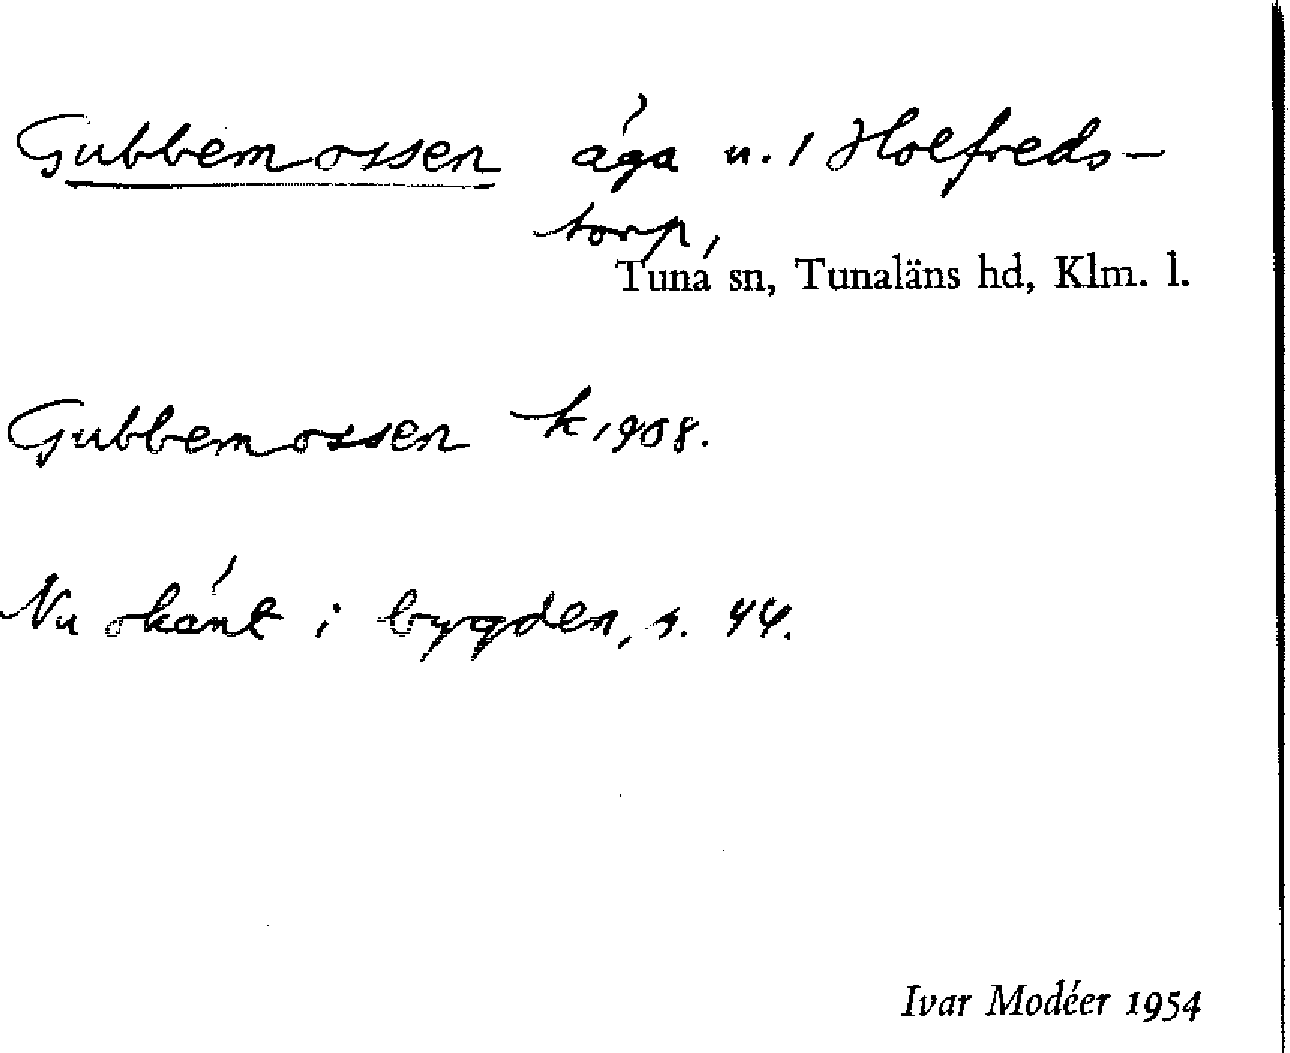 Gubbemossen äga u. 1 Holfreds-
torp,
Tuna sn, Tunaläns hd, Klm. l.
Gubbemossen k 1908.
Nu okänt i bygden, s. 44.
Ivar Modéer 1954